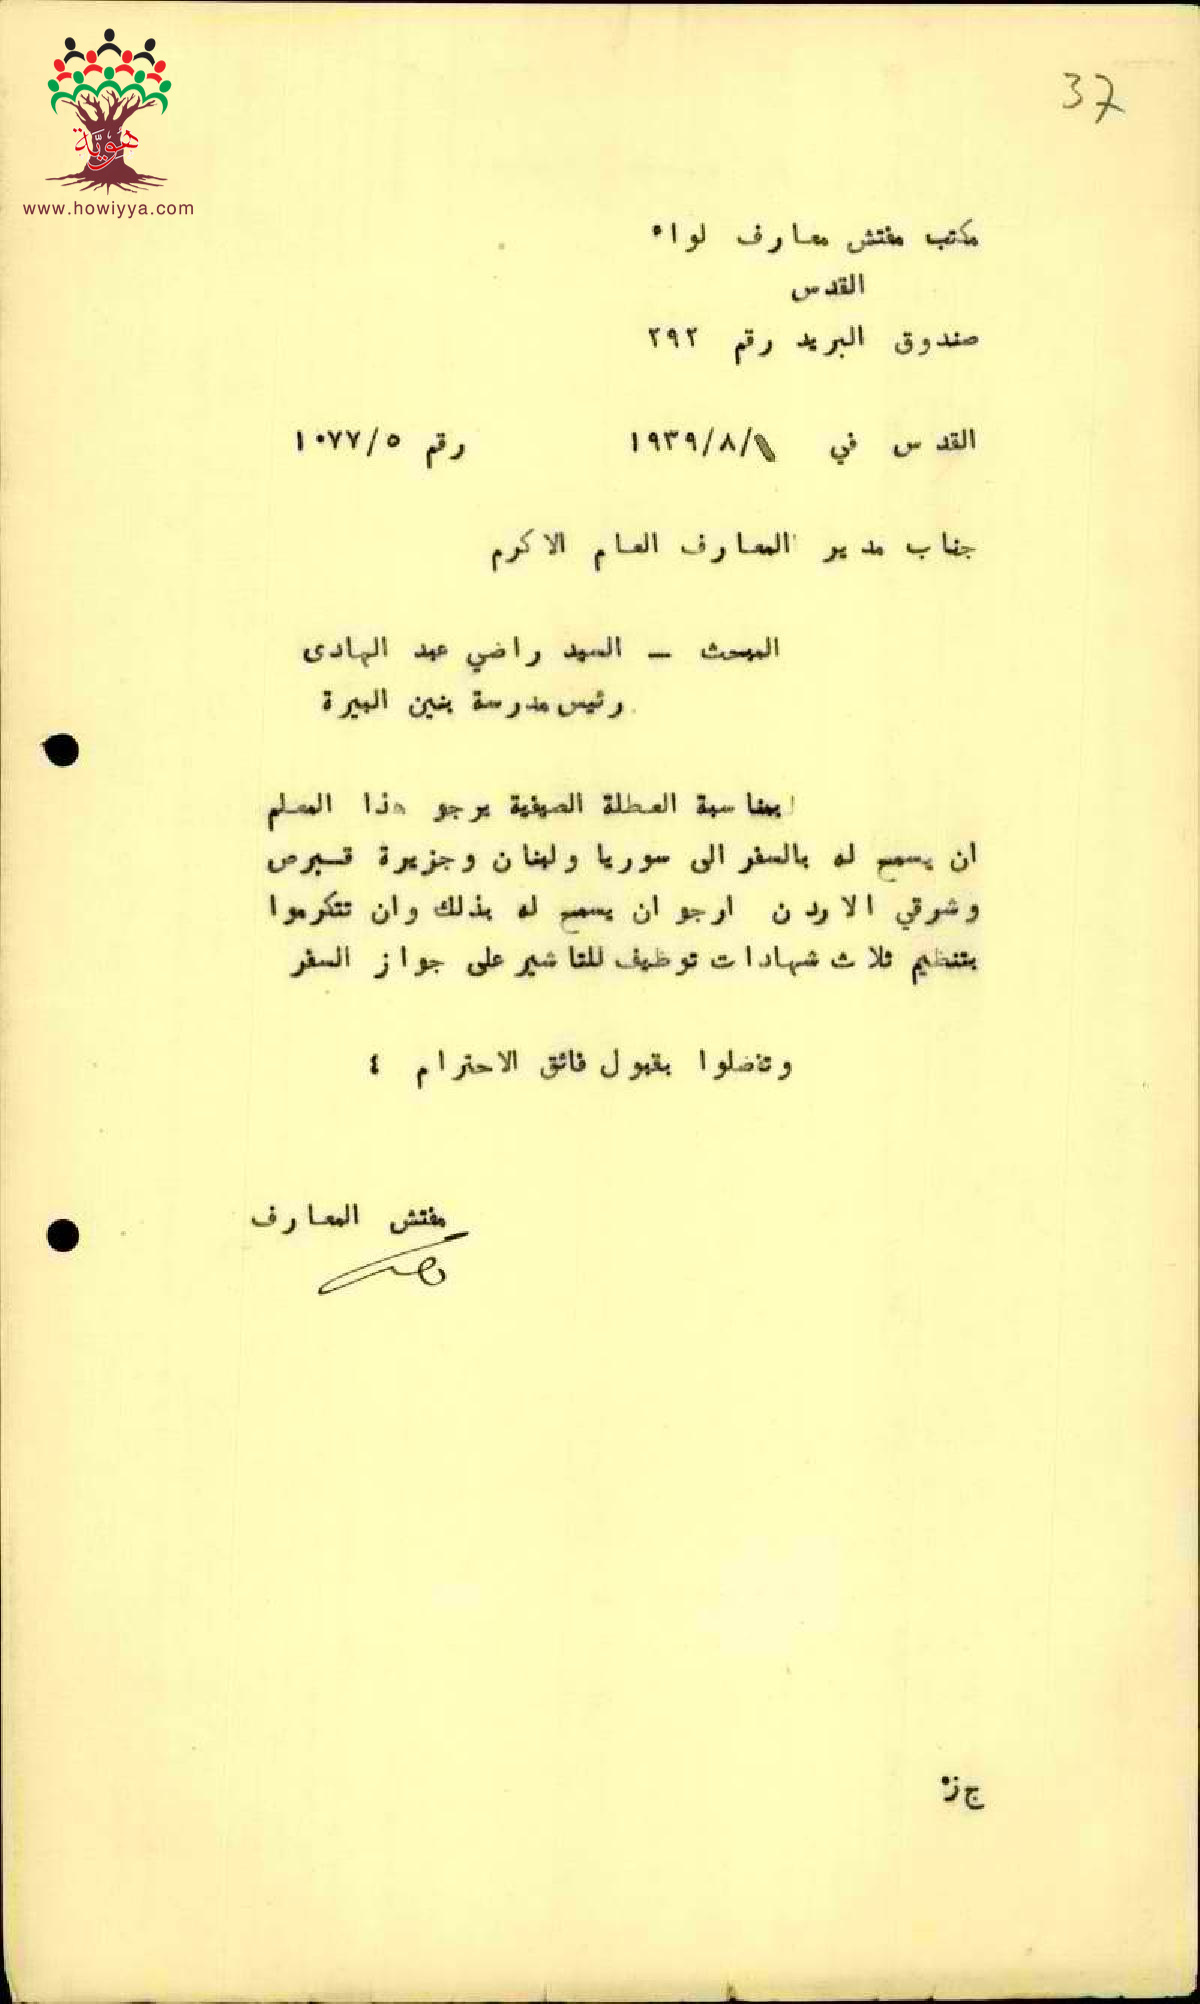 37
هوية
www.howiyya.com
مكتب مفتش معارف لواء
القدس
صندوق البريد رقم ٢٩٢
القدس في /٨/١٩٣٩ رقم ١٠٧٧/٥
جناب مدير المعارف العام الاكرم
المبحث – السيد راضي عبد الهادى
رئيس مدرسة بنين البيرة
بمناسبة العطلة الصيفية يرجو هذا المعلم
ان يسمح له بالسفر الى سوريا ولبنان وجزيرة قبرص
وشرقي الاردن ارجو ان يسمح له بذلك وان تتكرموا
بتنظيم ثلاث شهادات توظيف للتاشير على جواز السفر
وتفضلوا بقبول فائق الاحترام ٤
مفتش المعارف
ج ز